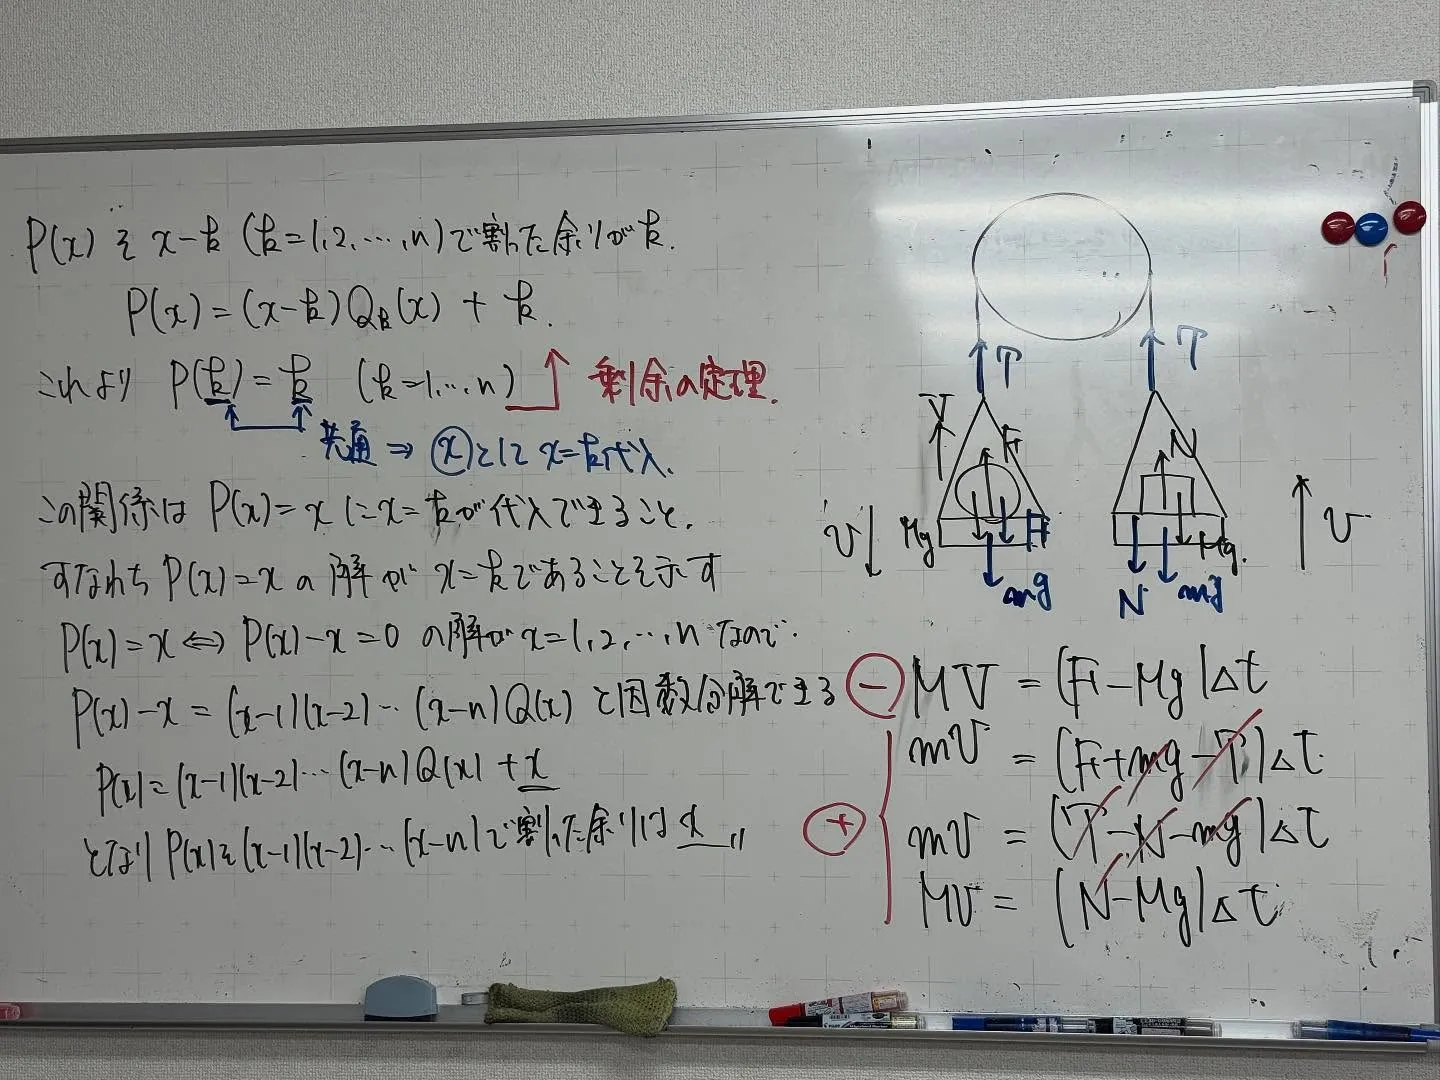 P(x)を x-k (k=1,2,…,n)で割った余りがk.
P(x)=(x-k)Qk(x) + k.
これより P(k)=k (k=1,…,n) 剰余の定理.
共通 ⇒ xとして x=k代入.
この関係は P(x)=x に x=kが代入できること.
すなわち P(x)=x の解が x=kであることを示す
P(x)=x ⇔ P(x)-x=0 の解が x=1,2,…,n なので.
P(x)-x = (x-1)(x-2)…(x-n)Q(x) と因数分解できる
P(x)=(x-1)(x-2)…(x-n)Q(x)+x
となり P(x)を(x-1)(x-2)…(x-n)で割った余りは x
T
T
V
F
N
v
Mg
F
mg
N
mg
Mg.
v
⊖ MV = (F-Mg)Δt
mv = (F+mg-T)Δt
⊕ mv = (T-N-mg)Δt
Mv = (N-Mg)Δt